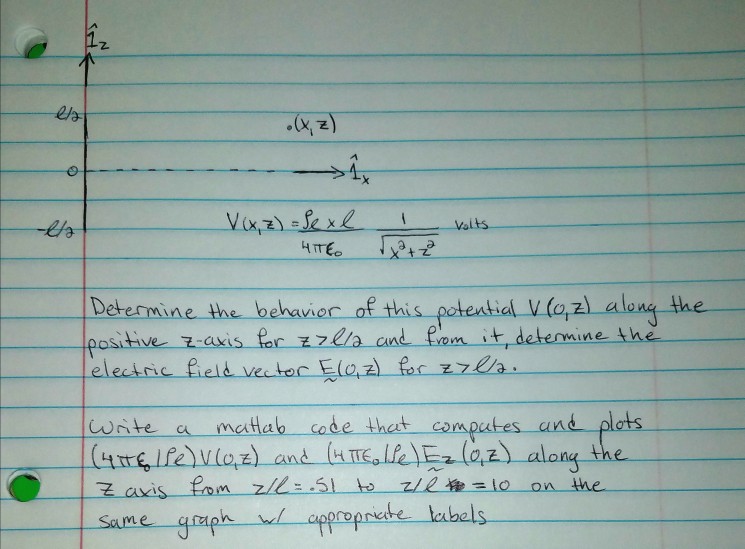 1̂z
l/2
.(x, z)
0
1̂x
-l/2
V(x,z) = ρe x l / 4πε₀ 1 / √x² + z² volts
Determine the behavior of this potential V(0,z) along the
positive z-axis for z > l/2 and from it, determine the
electric field vector E(0,z) for z > l/2.
Write a matlab code that computes and plots
(4πε₀/ρe) V(0,z) and (4πε₀/ρe) Ez (0,z) along the
z axis from z/l = .51 to z/l = 10 on the
same graph w/ appropriate labels